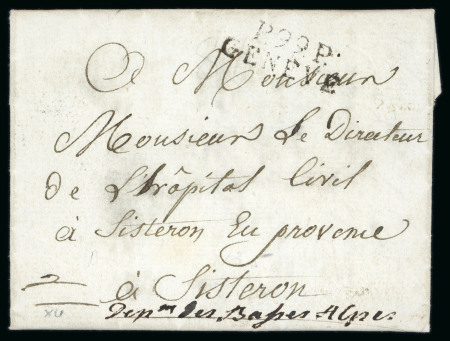 P.99.P.
GENEVE
A Monsieur
Monsieur Le Directeur
de L'hôpital Civil
à Sisteron En provence
à Sisteron
Depm des Basses Alpes